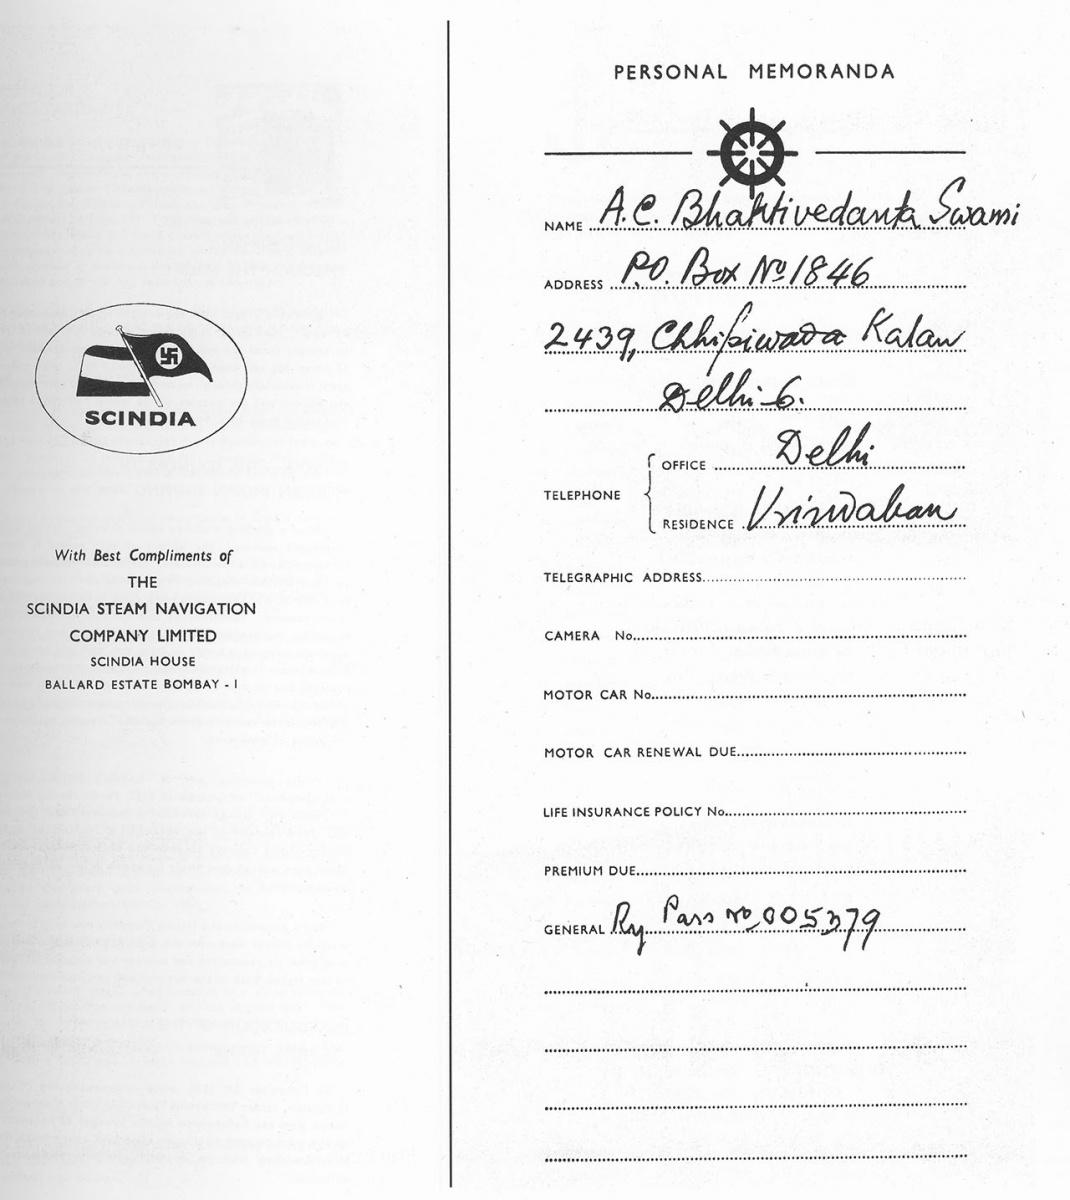 SCINDIA
With Best Compliments of
THE
SCINDIA STEAM NAVIGATION
COMPANY LIMITED
SCINDIA HOUSE
BALLARD ESTATE BOMBAY - 1
PERSONAL MEMORANDA
NAME A.C. Bhaktivedanta Swami
ADDRESS P.O. Box No 1846
2439, Chhipiwada Kalan
Delhi-6.
TELEPHONE
OFFICE Delhi
RESIDENCE Vrindaban
TELEGRAPHIC ADDRESS
CAMERA No.
MOTOR CAR No.
MOTOR CAR RENEWAL DUE
LIFE INSURANCE POLICY No.
PREMIUM DUE
GENERAL Ry Pass no. 005379